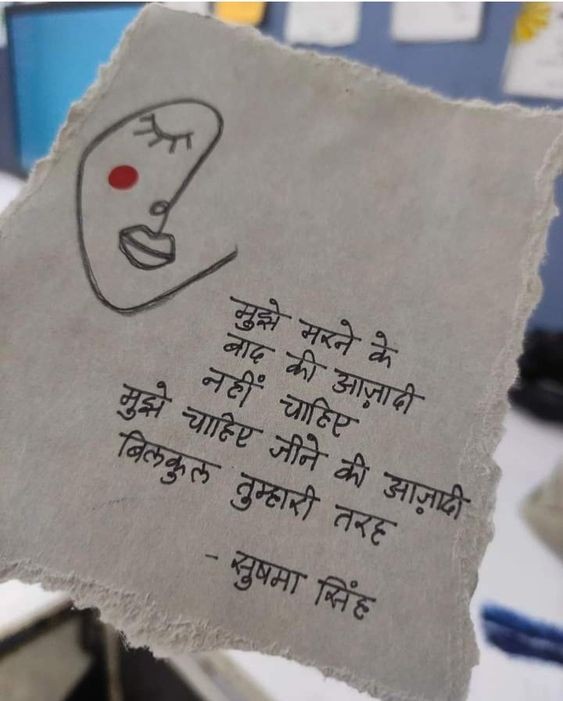 मुझे मरने के
बाद की आज़ादी
नहीं चाहिए
मुझे चाहिए जीने की आज़ादी
बिलकुल तुम्हारी तरह
- सुषमा सिंह